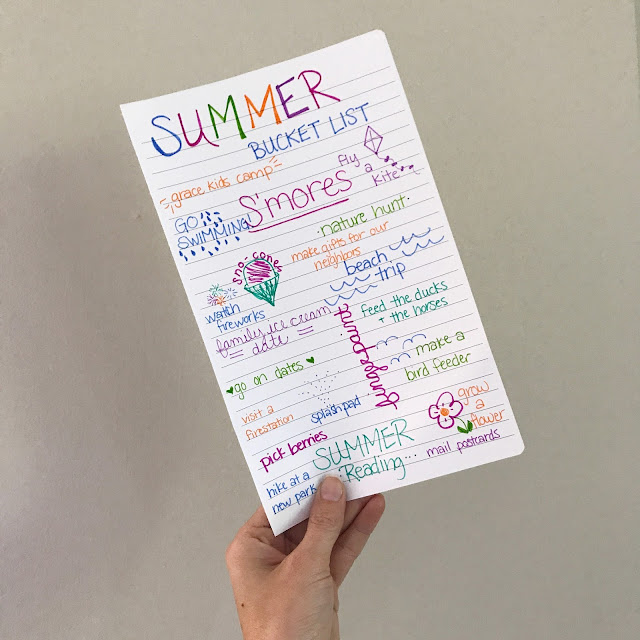 SUMMER
BUCKET LIST
grace kids camp
fly
a
kite
S'mores
GO
SWIMMING!
nature hunt
make gifts for our
neighbors
sno-cones
beach
trip
watch
fireworks
feed the ducks
+ the horses
family ice cream
date
fingerpaint
make a
bird feeder
go on dates
splash pad
visit a
firestation
grow
a
flower
pick berries
SUMMER
Reading...
mail postcards
hike at a
new park